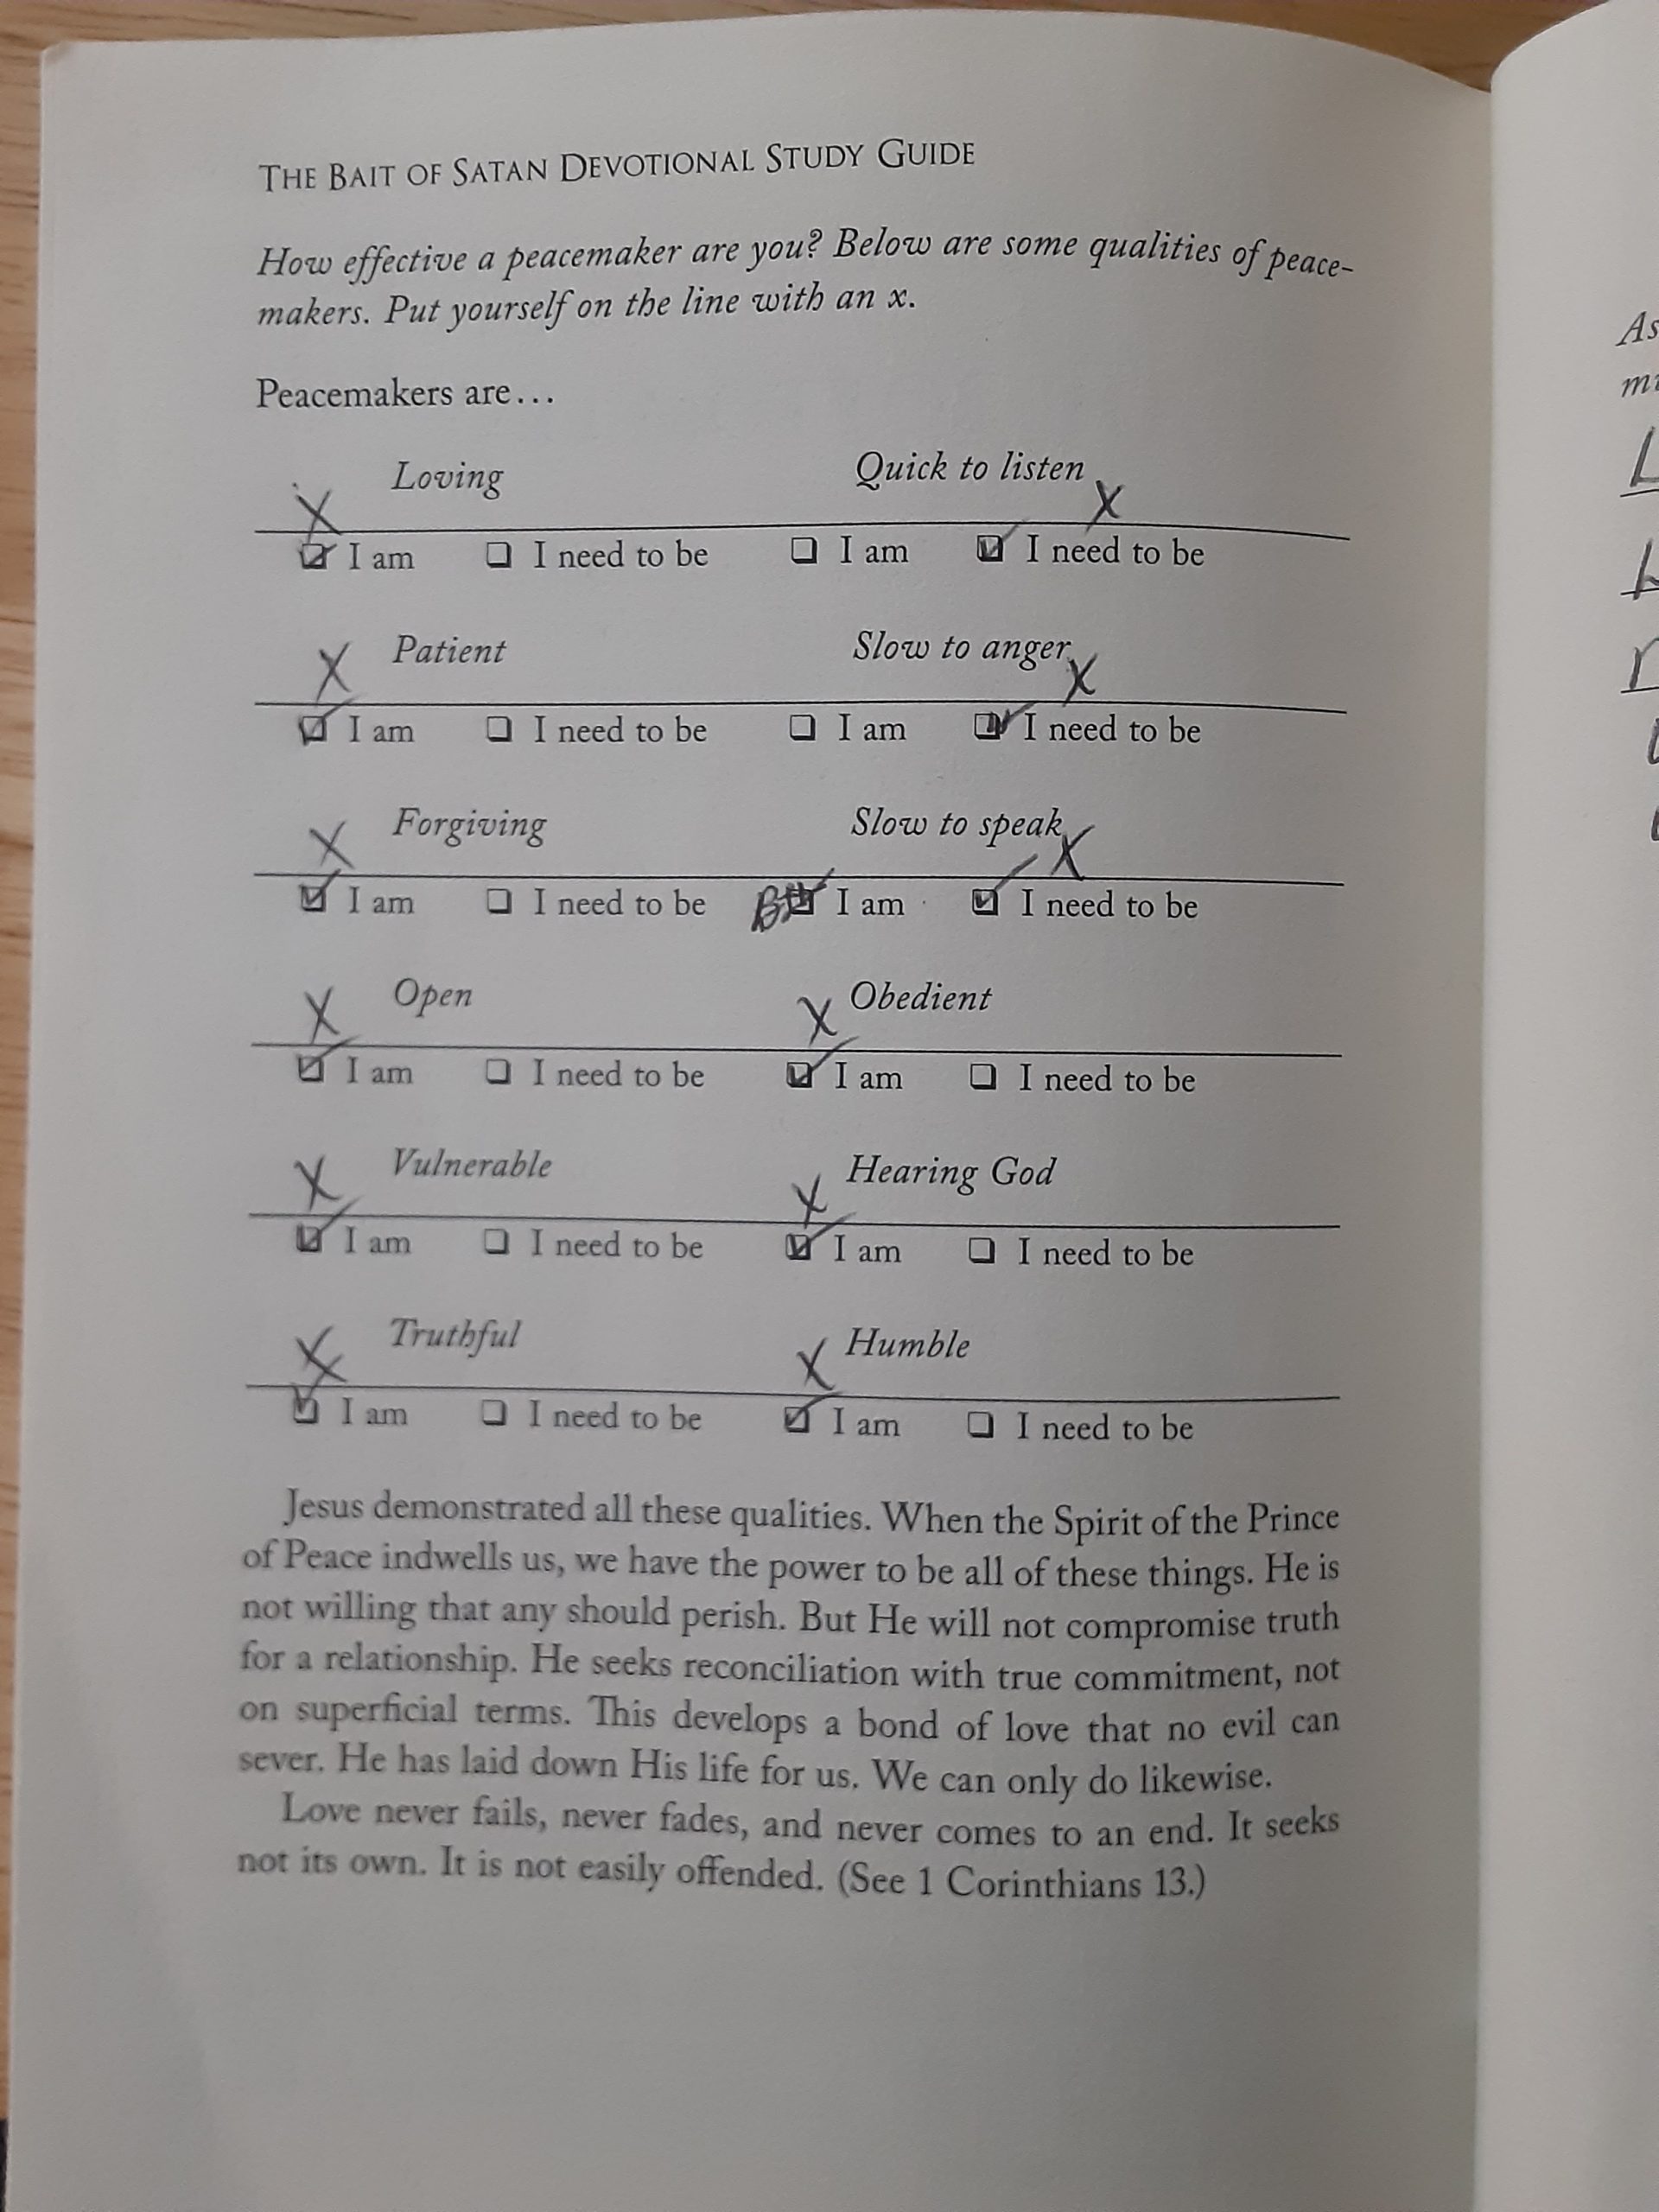 THE BAIT OF SATAN DEVOTIONAL STUDY GUIDE
How effective a peacemaker are you? Below are some qualities of peace-
makers. Put yourself on the line with an x.
Peacemakers are...
Loving Quick to listen
X X
☑ I am ❏ I need to be ❏ I am ☑ I need to be
Patient Slow to anger
X X
☑ I am ❏ I need to be ❏ I am ☑ I need to be
Forgiving Slow to speak
X X
☑ I am ❏ I need to be ☑ I am ☑ I need to be
Open Obedient
X X
☑ I am ❏ I need to be ☑ I am ❏ I need to be
Vulnerable Hearing God
X X
☑ I am ❏ I need to be ☑ I am ❏ I need to be
Truthful Humble
X X
☑ I am ❏ I need to be ☑ I am ❏ I need to be
Jesus demonstrated all these qualities. When the Spirit of the Prince
of Peace indwells us, we have the power to be all of these things. He is
not willing that any should perish. But He will not compromise truth
for a relationship. He seeks reconciliation with true commitment, not
on superficial terms. This develops a bond of love that no evil can
sever. He has laid down His life for us. We can only do likewise.
Love never fails, never fades, and never comes to an end. It seeks
not its own. It is not easily offended. (See 1 Corinthians 13.)
As